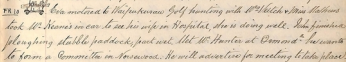 Eva motored to Waipukurau Golf hunting with Mrs Welch & Miss Mathews
took Mr Reamer in car to see his wife in Hospital, she is doing well. John finished
ploughing stubble paddock, but wet. Met W. Hunter at Commd. he wants
to form a Committee in Norsewood. He will advertise for meeting to take place